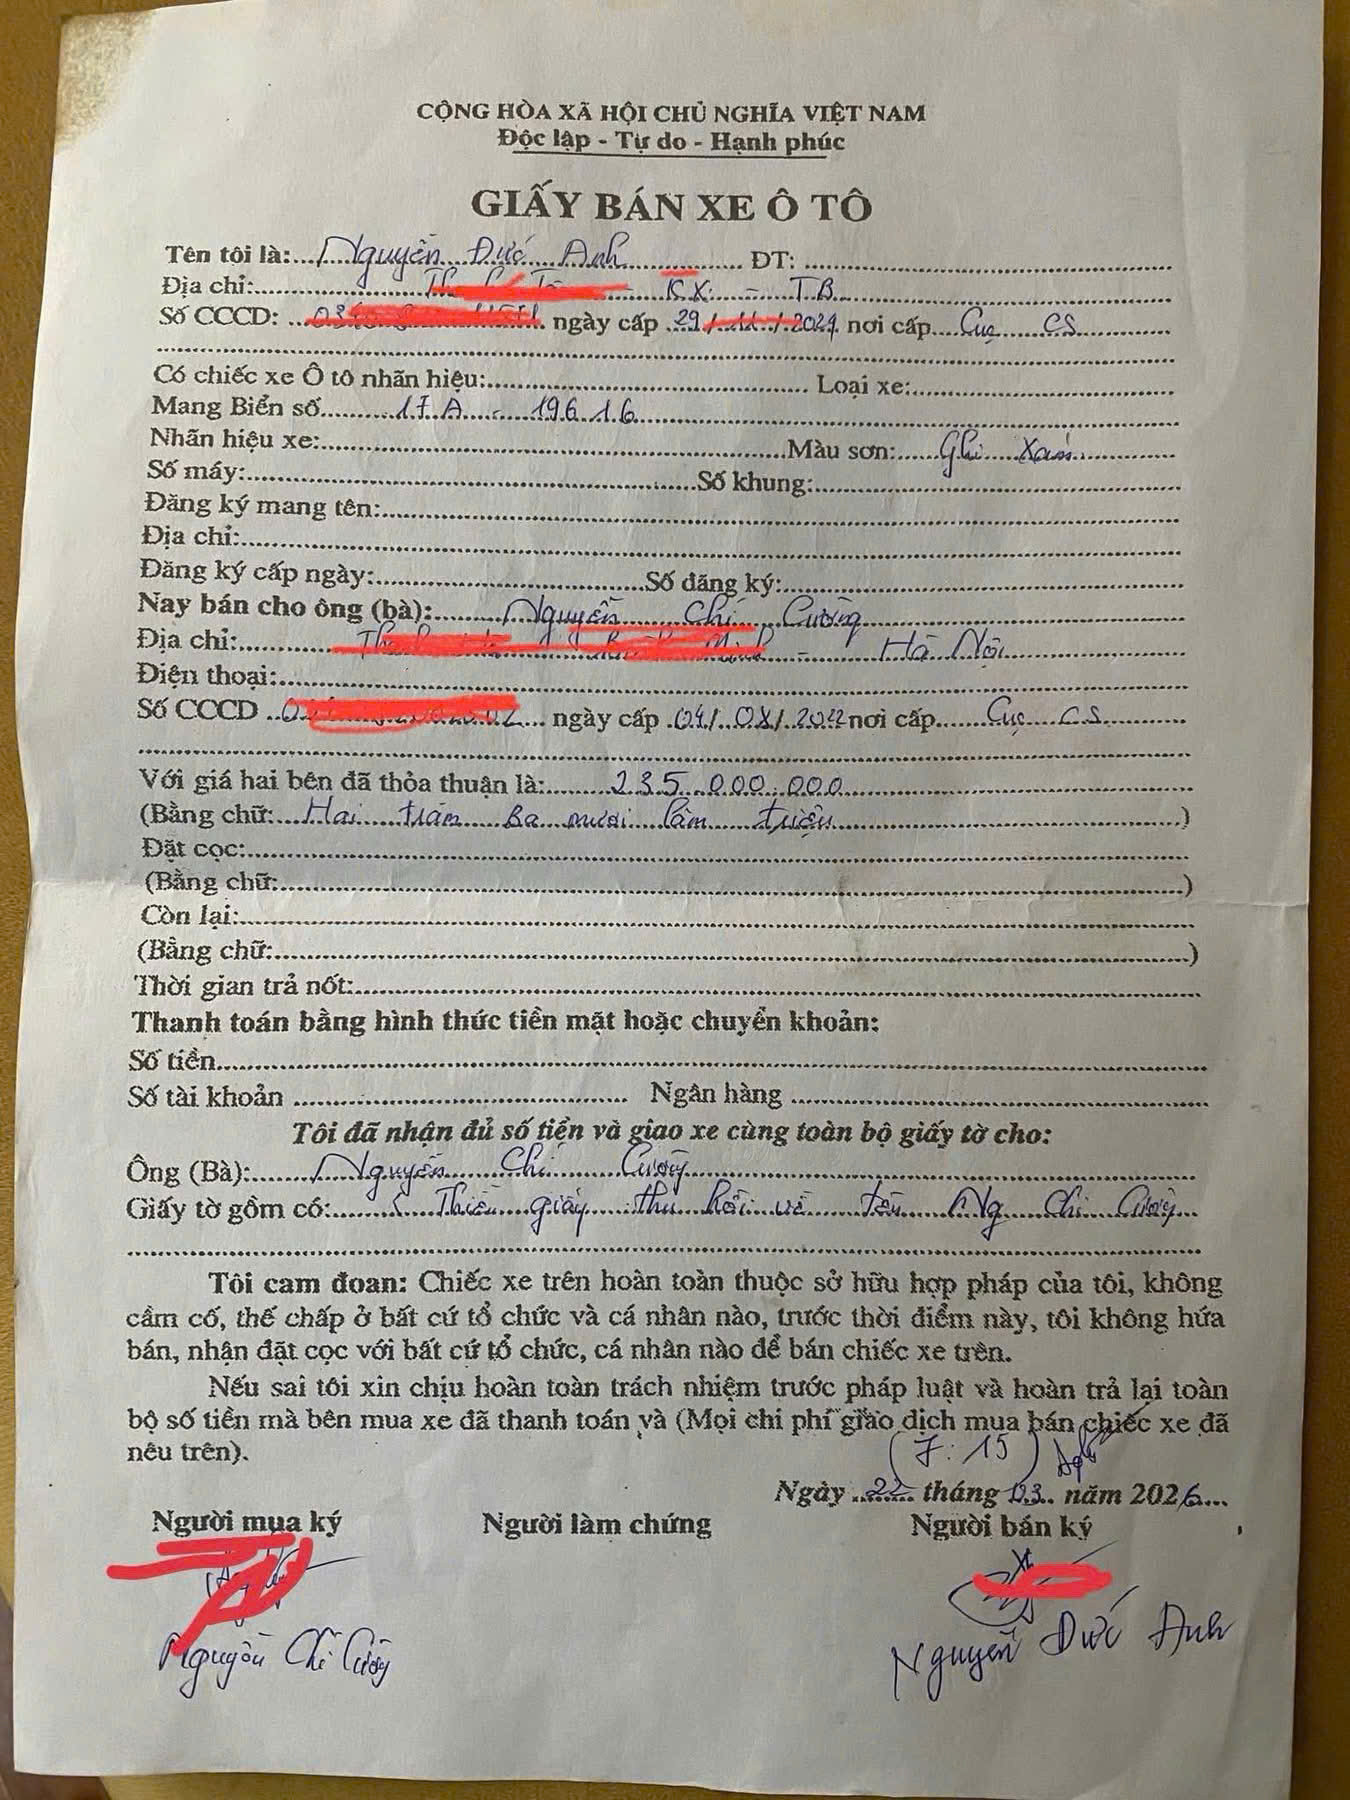 CỘNG HÒA XÃ HỘI CHỦ NGHĨA VIỆT NAM
Độc lập - Tự do - Hạnh phúc
GIẤY BÁN XE Ô TÔ
Tên tôi là: Nguyễn Đức Anh ĐT:
Địa chỉ: - KX - TB
Số CCCD: ngày cấp 29/11/2021 nơi cấp Cục CS
Có chiếc xe Ô tô nhãn hiệu: Loại xe:
Mang Biển số 17A - 196 16
Nhãn hiệu xe: Màu sơn: Ghi Xám
Số máy: Số khung:
Đăng ký mang tên:
Địa chỉ:
Đăng ký cấp ngày: Số đăng ký:
Nay bán cho ông (bà): Nguyễn Chí Cường
Địa chỉ: - Hà Nội
Điện thoại:
Số CCCD ngày cấp 04/08/2022 nơi cấp Cục CS
Với giá hai bên đã thỏa thuận là: 235.000.000
(Bằng chữ: Hai trăm Ba mươi lăm triệu )
Đặt cọc:
(Bằng chữ: )
Còn lại:
(Bằng chữ: )
Thời gian trả nốt:
Thanh toán bằng hình thức tiền mặt hoặc chuyển khoản:
Số tiền
Số tài khoản Ngân hàng
Tôi đã nhận đủ số tiền và giao xe cùng toàn bộ giấy tờ cho:
Ông (Bà): Nguyễn Chí Cường
Giấy tờ gồm có: Thiếu giấy thu hồi về tên Ng Chí Cường
Tôi cam đoan: Chiếc xe trên hoàn toàn thuộc sở hữu hợp pháp của tôi, không
cầm cố, thế chấp ở bất cứ tổ chức và cá nhân nào, trước thời điểm này, tôi không hứa
bán, nhận đặt cọc với bất cứ tổ chức, cá nhân nào để bán chiếc xe trên.
Nếu sai tôi xin chịu hoàn toàn trách nhiệm trước pháp luật và hoàn trả lại toàn
bộ số tiền mà bên mua xe đã thanh toán và (Mọi chi phí giao dịch mua bán chiếc xe đã
nêu trên).
(7:15)
Ngày 22 tháng 03 năm 2026
Người mua ký Người làm chứng Người bán ký
Nguyễn Chí Cường Nguyễn Đức Anh